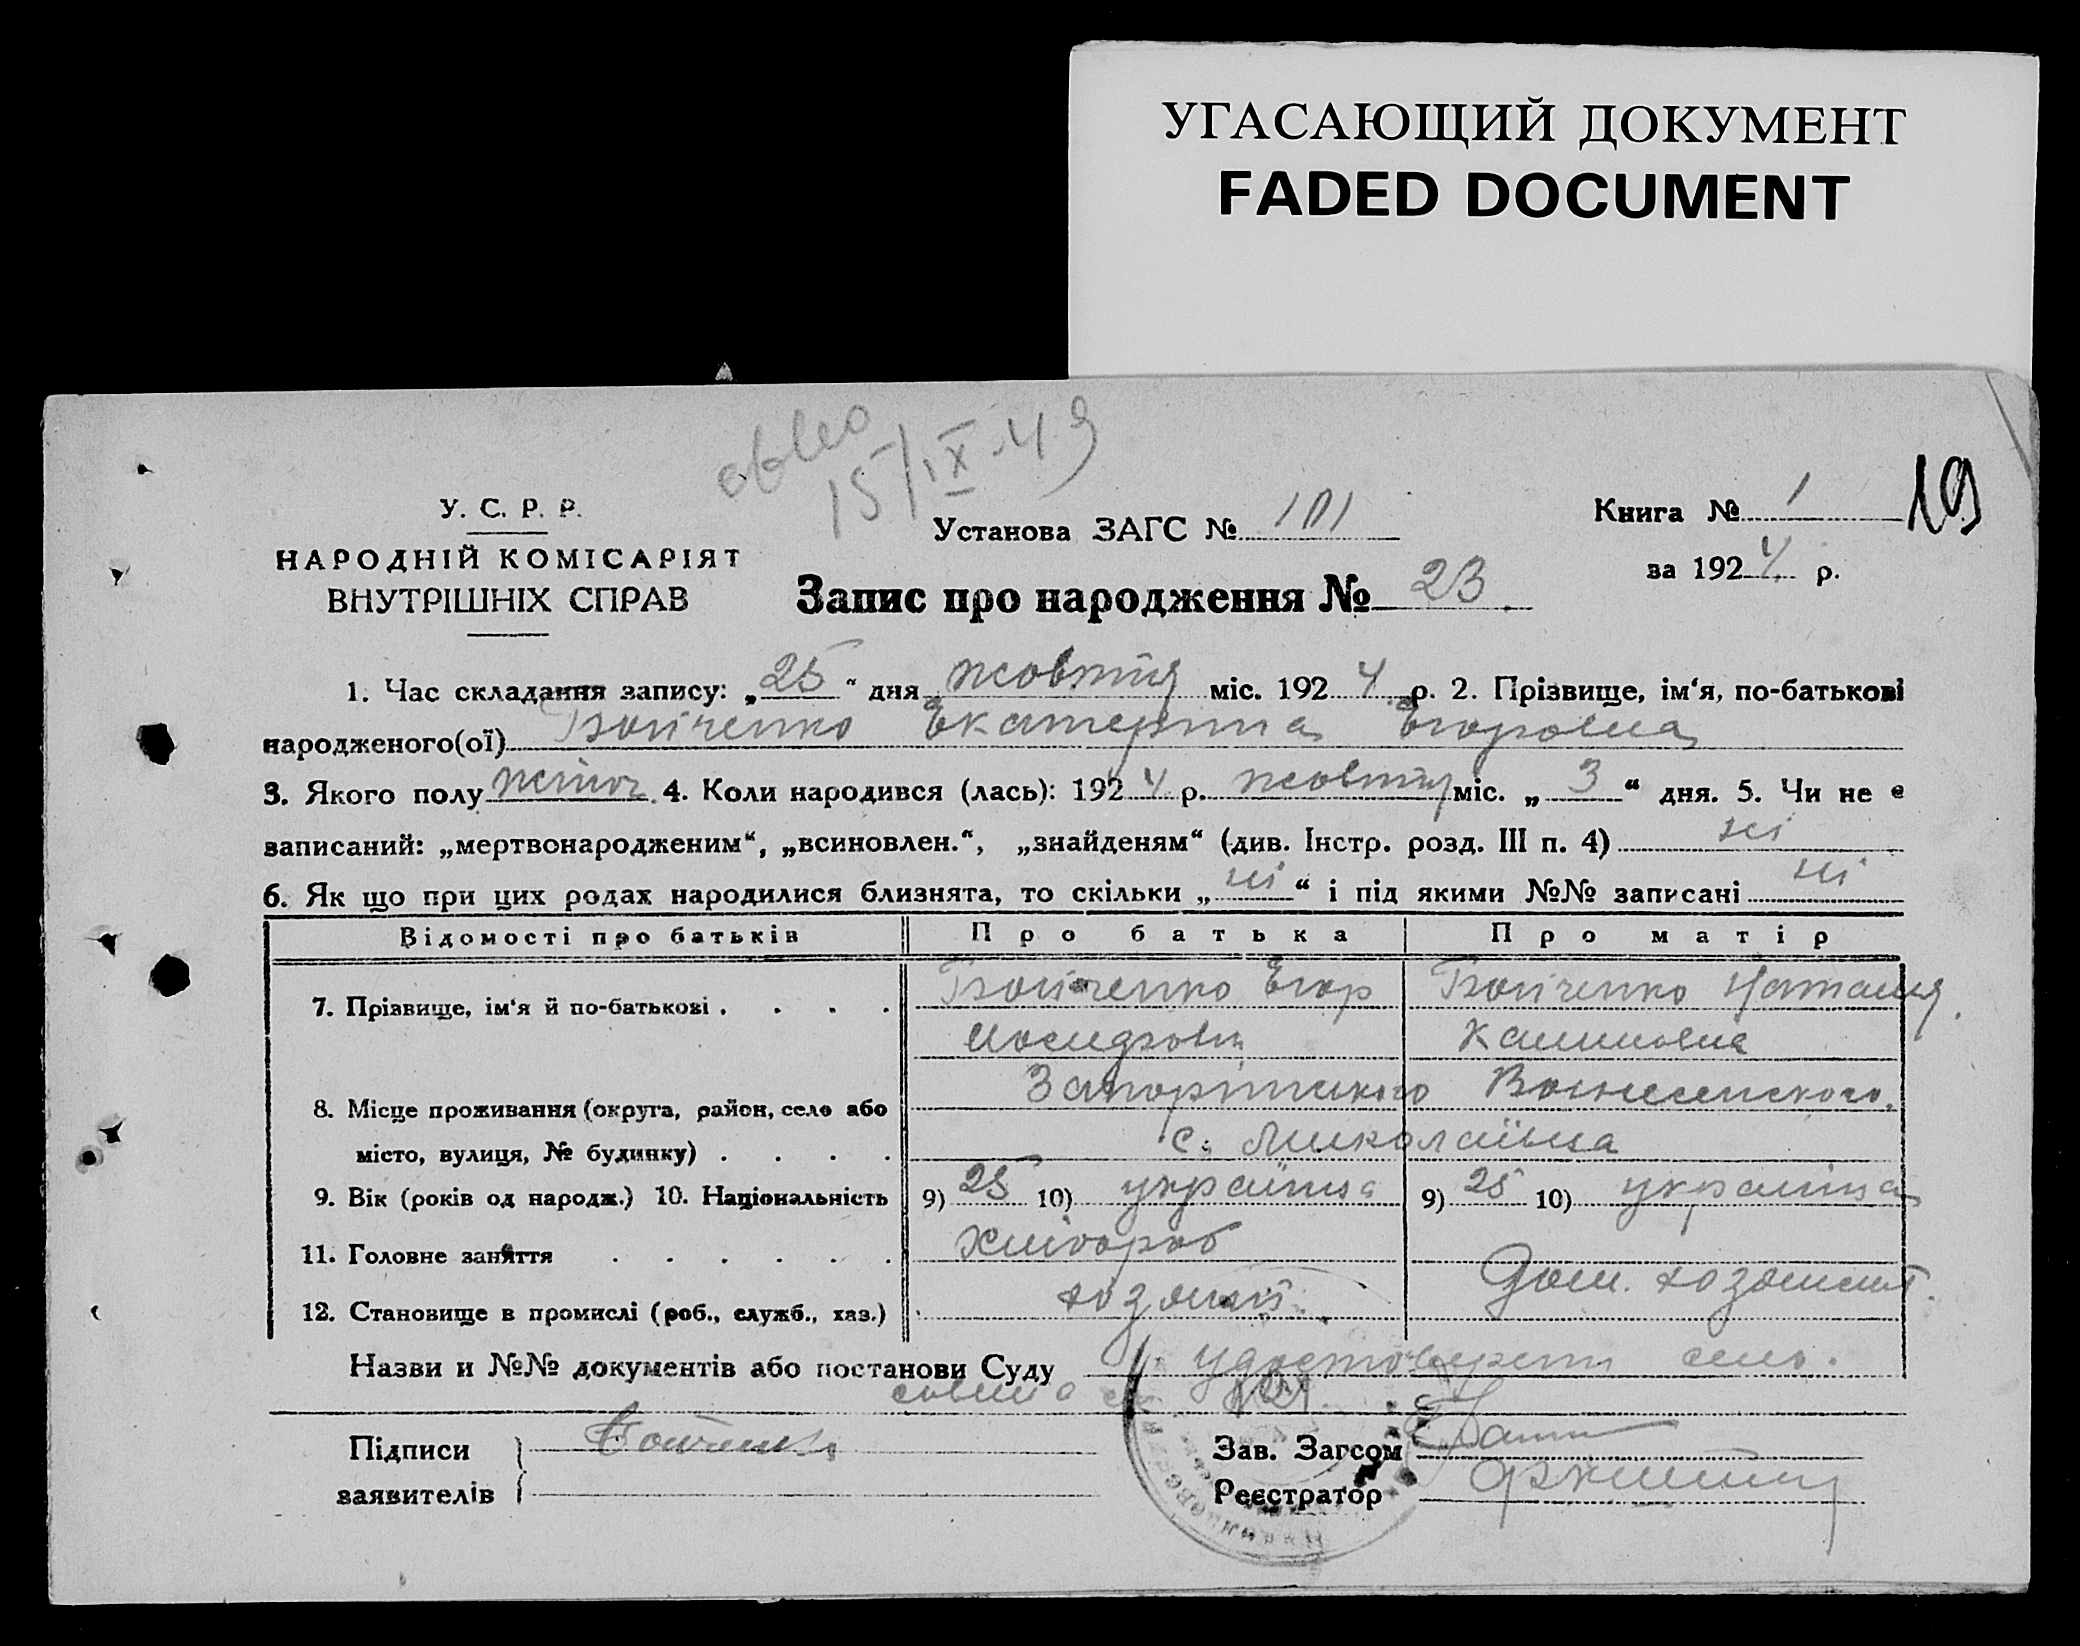 УГАСАЮЩИЙ ДОКУМЕНТ
FADED DOCUMENT
15/IX-49
19
У. С. Р. Р.
НАРОДНІЙ КОМІСАРІЯТ
ВНУТРІШНІХ СПРАВ
Установа ЗАГС № 101
Книга № 1
за 1924 р.
Запис про народження № 23.
1. Час складання запису: „25“ дня жовтня міс. 1924 р. 2. Прізвище, ім‘я, по-батькові
народженого(ої) Бойченко Екатерина Егоровна
3. Якого полу жіноч. 4. Коли народився (лась): 1924 р. жовтня міс. „3“ дня. 5. Чи не є
записаний: „мертвонародженим“, „всиновлен.“, „знайденям“ (див. Інстр. розд. III п. 4) ні
6. Як що при цих родах народилися близнята, то скільки „ні“ і під якими №№ записані ні
Відомості про батьків Про батька Про матір
7. Прізвище, ім‘я й по-батькові . . . . Бойченко Егор Бойченко Наталия
8. Місце проживання (округа, район, село або
місто, вулиця, № будинку) . . . . с. Миколаївка
9. Вік (років од народж.) 10. Національність 9) 25 10) українец 9) 25 10) українка
11. Головне заняття . . . . . . Хлібороб
12. Становище в промислі (роб., служб., хаз.) хозяин Дом. хозяист.
Назви и №№ документів або постанови Суду удостоверен сель.
101
Підписи Бойченко
заявителів
Зав. Загсом
Реєстратор